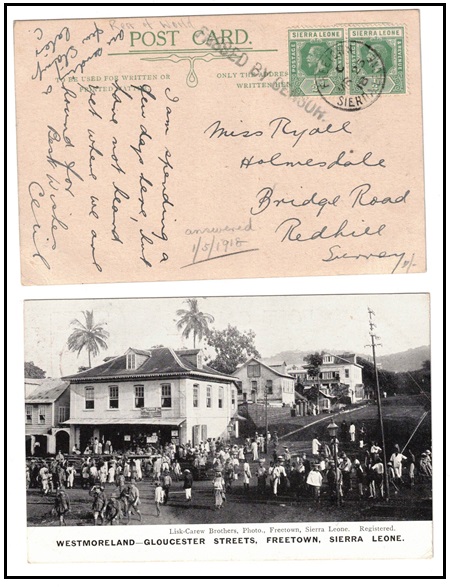 Rest of World
POST CARD.
TO BE USED FOR WRITTEN OR
ONLY THE ADDRESS
WRITTEN HERE
PASSED BY CENSOR.
SIERRA LEONE
SIERRA LEONE
POSTAGE
REVENUE
SIERRA
I am spending a
few days here, but
have not heard
as yet where we are
bound for.
Best Wishes
Cecil
Miss Ryall
Holmesdale
Bridge Road
Redhill
Surrey
answered
1/5/1918
Lisk-Carew Brothers, Photo., Freetown, Sierra Leone. Registered.
WESTMORELAND—GLOUCESTER STREETS, FREETOWN, SIERRA LEONE.